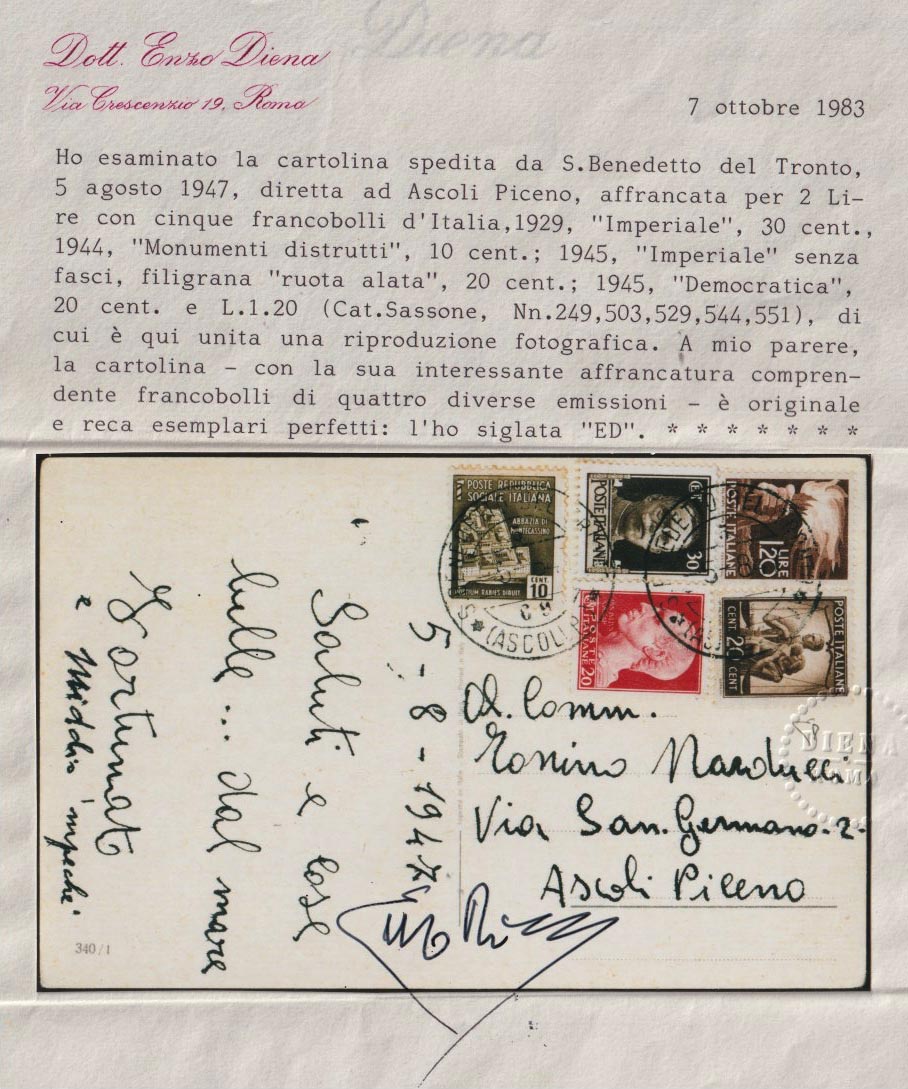 Dott. Enzo Diena
Via Crescenzio 19, Roma
Diena
7 ottobre 1983
Ho esaminato la cartolina spedita da S.Benedetto del Tronto,
5 agosto 1947, diretta ad Ascoli Piceno, affrancata per 2 Li-
re con cinque francobolli d'Italia,1929, "Imperiale", 30 cent.,
1944, "Monumenti distrutti", 10 cent.; 1945, "Imperiale" senza
fasci, filigrana "ruota alata", 20 cent.; 1945, "Democratica",
20 cent. e L.1.20 (Cat.Sassone, Nn.249,503,529,544,551), di
cui è qui unita una riproduzione fotografica. A mio parere,
la cartolina - con la sua interessante affrancatura compren-
dente francobolli di quattro diverse emissioni - è originale
e reca esemplari perfetti: l'ho siglata "ED". * * * * * * *
POSTE REPUBBLICA
SOCIALE ITALIANA
ABBAZIA DI
MONTECASSINO
CENT.
10
HOSTIUM RABIES DIRUIT
(ASCOLI
POSTE ITALIANE
CENT
30
POSTE ITALIANE
LIRE
1,20
POSTE
ITALIANE
20
POSTE ITALIANE
CENT 20 CENT
5-8-1947
Saluti e cose
belle... dal mare
e
Al Comm.
Narducci
Via San Germano-2-
Ascoli Piceno
DIENA
ROMA
340/1